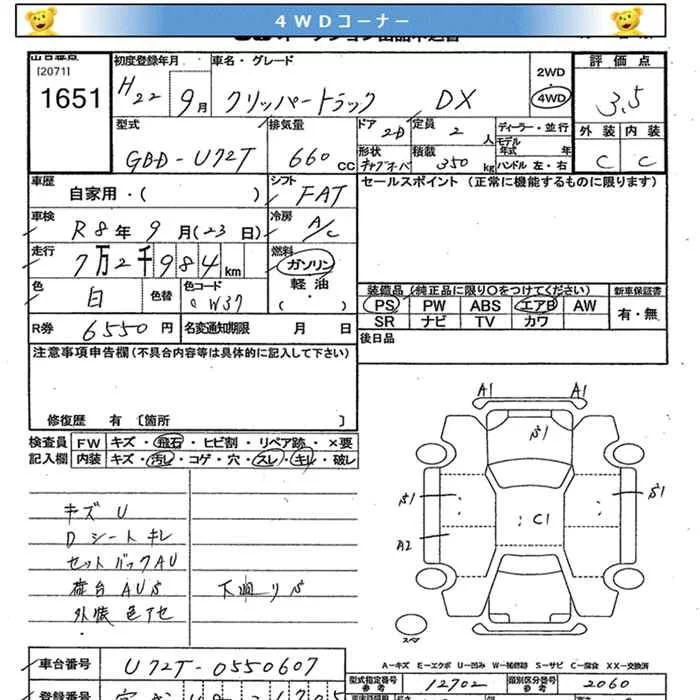 4WDコーナー
[2071]
1651
初度登録年月
H22 9月
車名・グレード
クリッパートラック DX
2WD
・
4WD
評価点
3.5
外装 内装
C C
型式
GBD-U72T
排気量
660 CC
ドア 2D
定員 2 人
形状 キャブオーバ
積載 350 kg
ディーラー・並行
モデル年式 年
ハンドル 左・右
車歴
自家用・( )
シフト FAT
車検 R8年 9月(23日)
冷房 A/C
走行 7万2千984km
燃料
ガソリン
軽油
・
( )
色 白 色替
色コード W37
R券 6550円
名変通知期限 月 日
セールスポイント(正常に機能するものに限ります)
装備品(純正品に限り○をつけてください)
PS PW ABS エアB AW
SR ナビ TV カワ
新車保証書
有・無
後日品
注意事項申告欄(不具合内容等は具体的に記入して下さい)
修復歴 有〔箇所 〕
検査員 FW キズ・飛石・ヒビ割・リペア跡・×要
記入欄 内装 キズ・汚レ・コゲ・穴・スレ・キレ・破レ
キズ U
Dシートキレ
セットバックAU
荷台AUS
下廻りS
外装色アセ
A1 A1
S1
S1 S1
C1
A2
スペア
A-キズ E-エクボ U-凹み W-補修跡 S-サビ C-腐食 XX-交換済
車台番号 U72T-0550607
型式指定番号
参考
12702
類別区分番号
参考
2060
登録番号